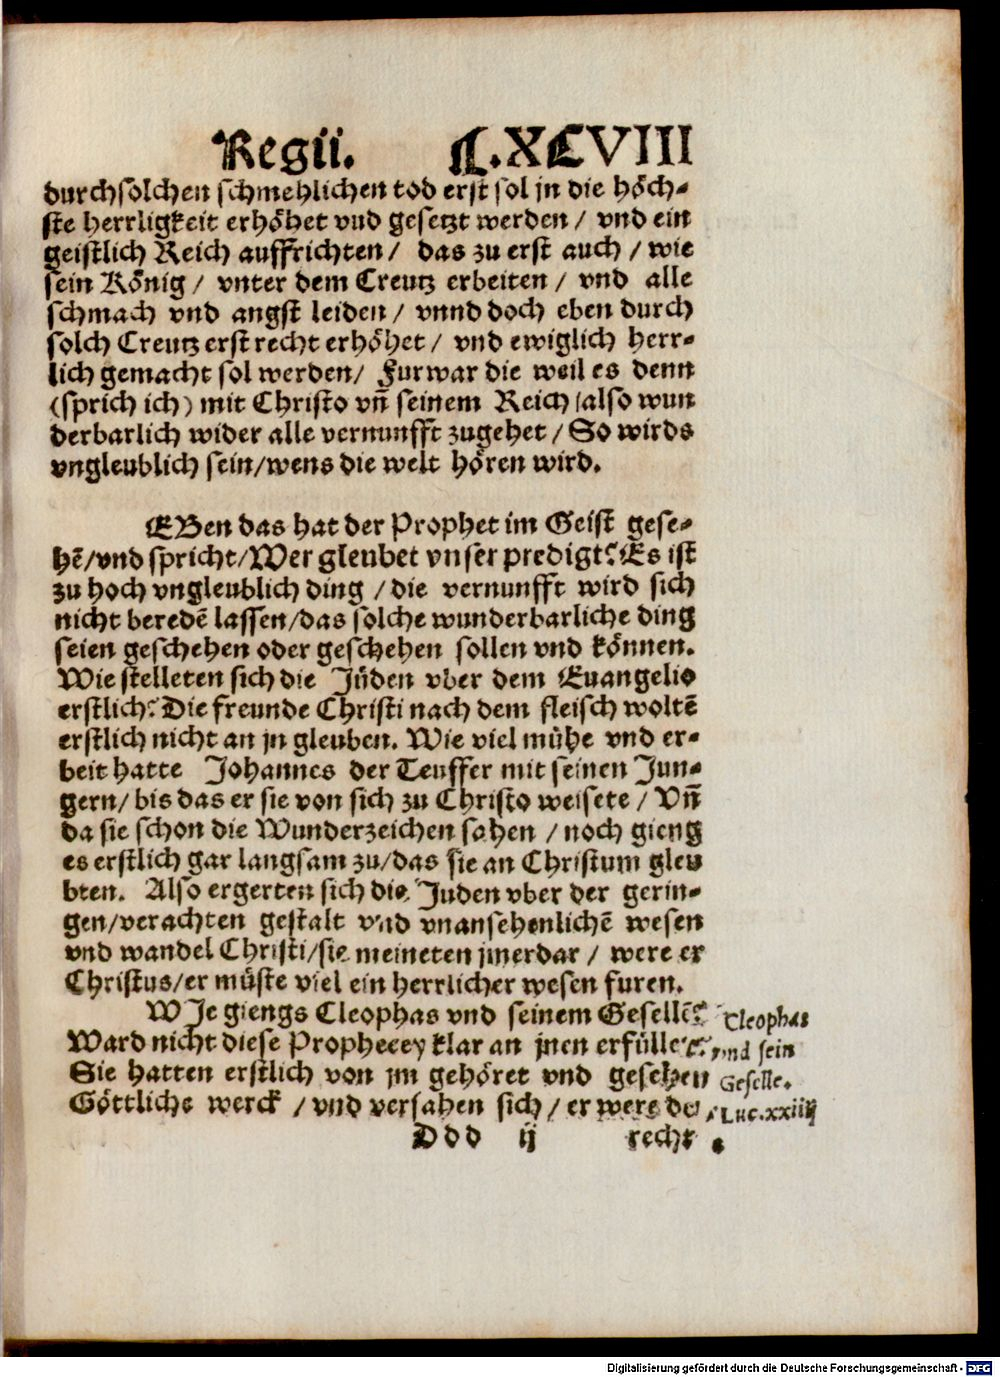 Regii. C.XCVIII
durch solchen schmehlichen tod erst sol jn die höch-
ste herrligkeit erhöhet vnd gesetzt werden / vnd ein
geistlich Reich auffrichten / das zu erst auch / wie
sein König / vnter dem Creutz erbeiten / vnd alle
schmach vnd angst leiden / vnnd doch eben durch
solch Creutz erst recht erhöhet / vnd ewiglich herr-
lich gemacht sol werden / Furwar die weil es denn
(sprich ich) mit Christo vñ seinem Reich / also wun
derbarlich wider alle vernunfft zugehet / So wirds
vngleublich sein/wens die welt hören wird.
EBen das hat der Prophet im Geist gese-
hẽ/vnd spricht/Wer gleubet vnser predigt? Es ist
zu hoch vngleublich ding / die vernunfft wird sich
nicht beredẽ lassen/das solche wunderbarliche ding
seien geschehen oder geschehen sollen vnd können.
Wie stelleten sich die Jüden vber dem Euangelio
erstlich? Die freunde Christi nach dem fleisch woltẽ
erstlich nicht an jn gleuben. Wie viel mühe vnd er-
beit hatte Johannes der Teuffer mit seinen Jun-
gern/ bis das er sie von sich zu Christo weisete / Vñ
da sie schon die Wunderzeichen sahen / noch gieng
es erstlich gar langsam zu/das sie an Christum gleu
bten. Also ergerten sich die Juden vber der gerin-
gen/verachten gestalt vnd vnansehenlichẽ wesen
vnd wandel Christi/sie meineten jmerdar / were er
Christus/er müste viel ein herrlicher wesen furen.
WJe giengs Cleophas vnd seinem Gesellẽ?
Ward nicht diese Prophecey klar an jnen erfüllet?
Sie hatten erstlich von jm gehöret vnd gesehen
Göttliche werck / vnd versahen sich / er were der
Cleophas
vnd sein
Geselle.
Luc.xxiiij
Ddd ij recht
Digitalisierung gefördert durch die Deutsche Forschungsgemeinschaft - DFG